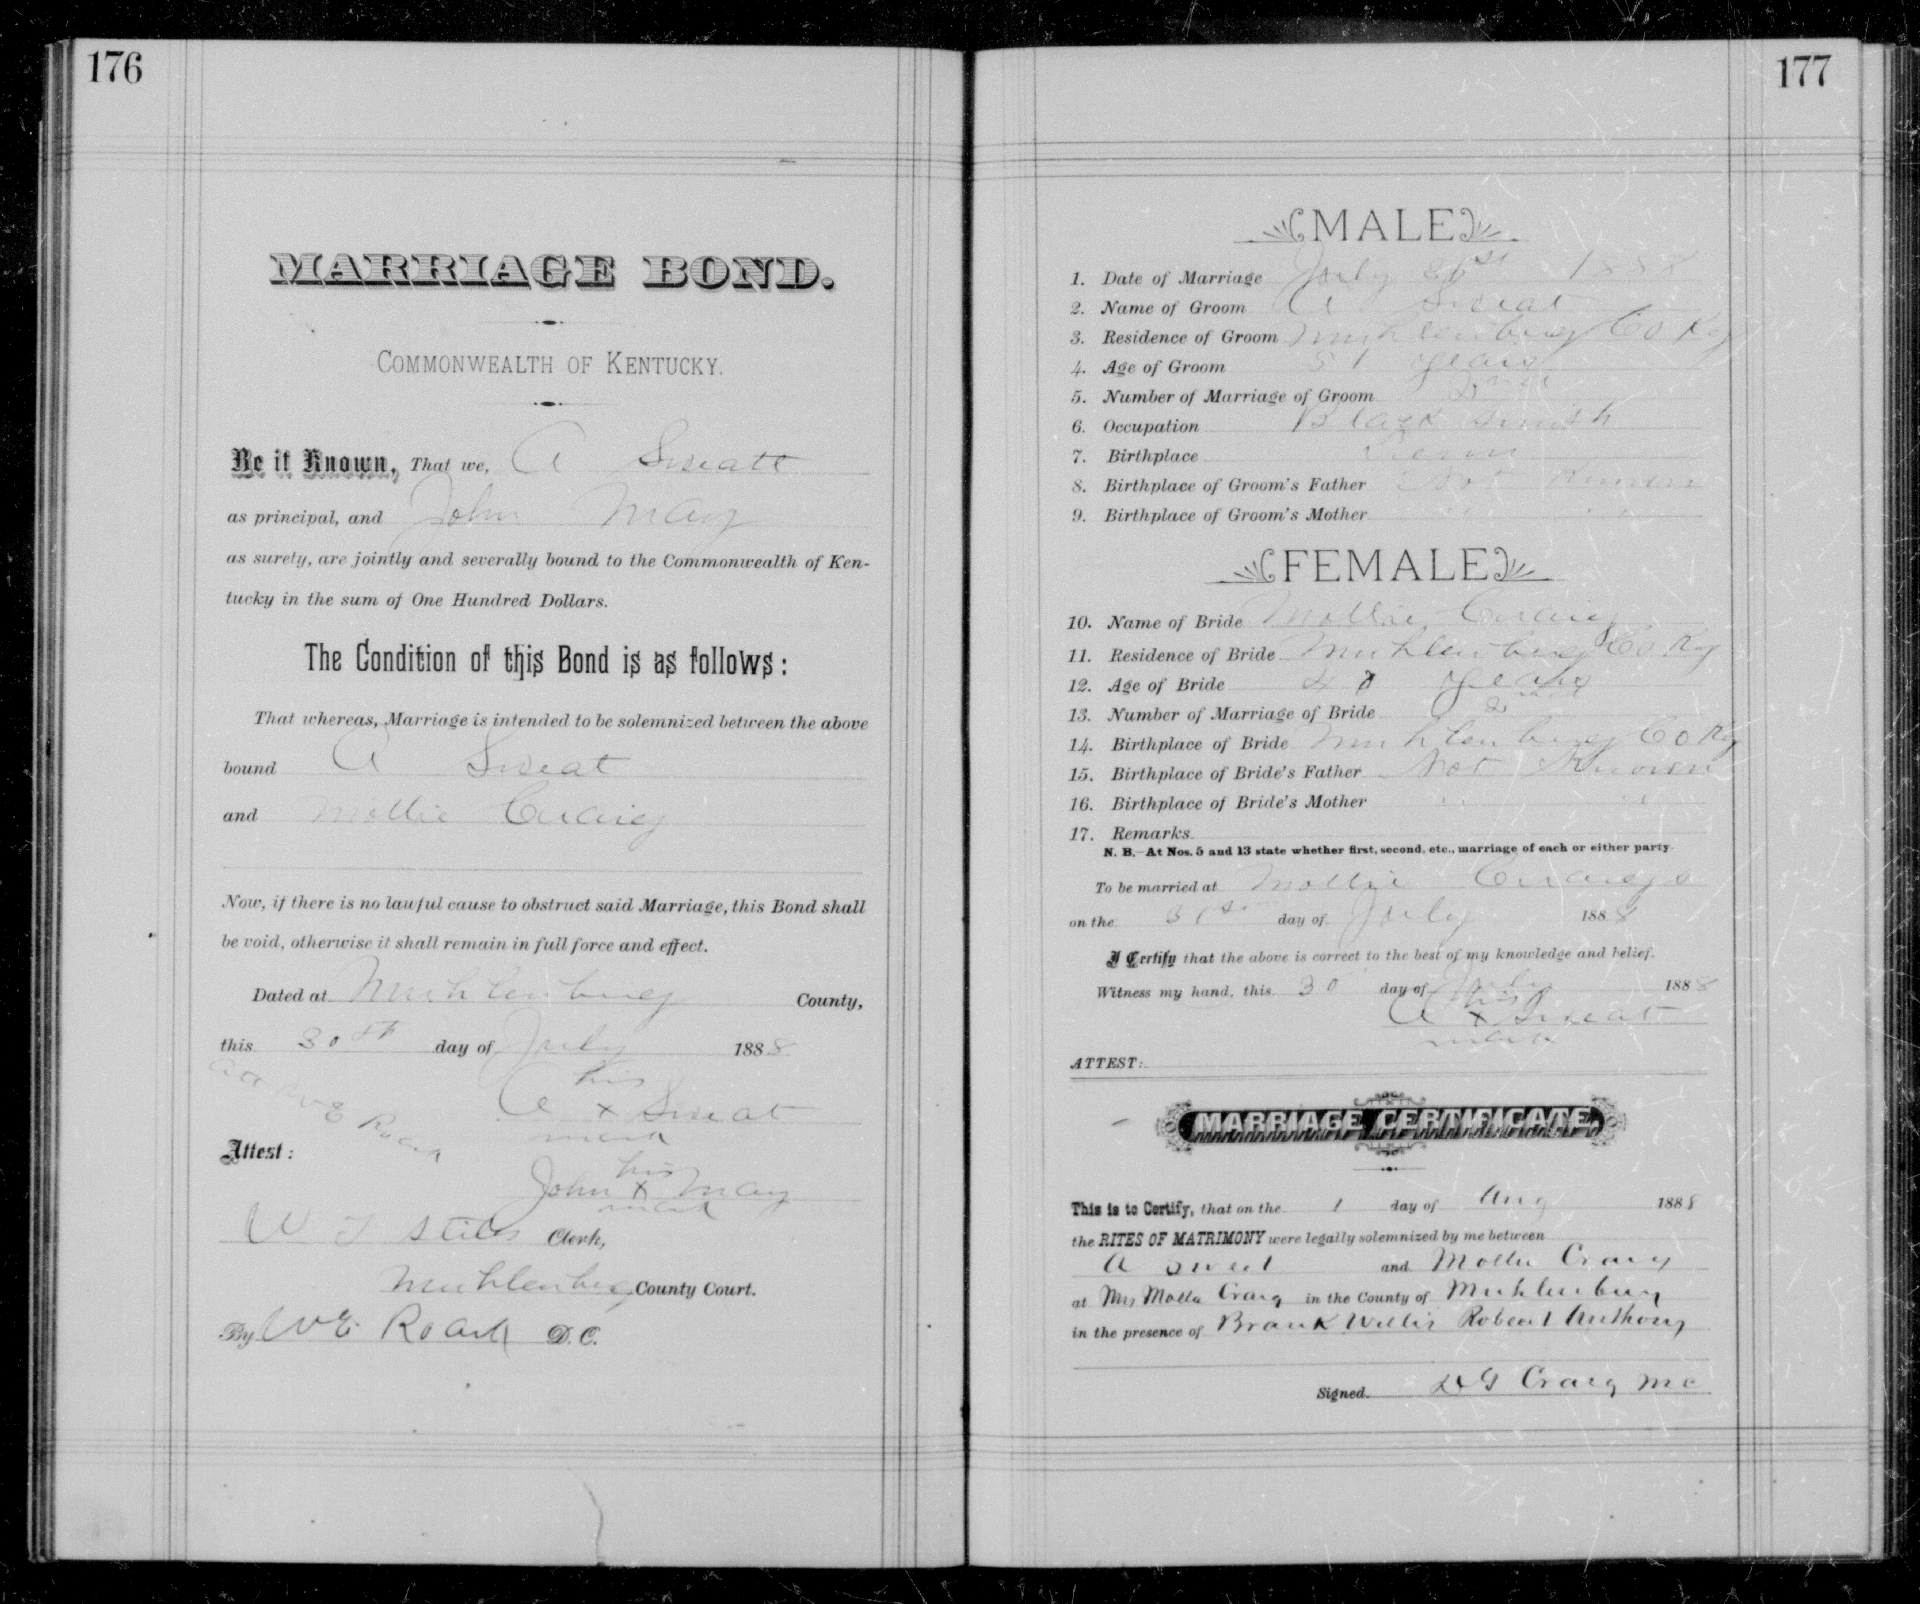 176
MARRIAGE BOND.
COMMONWEALTH OF KENTUCKY.
Be it Known, That we, A Sweatt
as principal, and John May
as surety, are jointly and severally bound to the Commonwealth of Ken-
tucky in the sum of One Hundred Dollars.
The Condition of this Bond is as follows:
That whereas, Marriage is intended to be solemnized between the above
bound A Sweat
and Mollie Craig
Now, if there is no lawful cause to obstruct said Marriage, this Bond shall
be void, otherwise it shall remain in full force and effect.
Dated at Muhlenburg County,
this 30th day of July 1888
Att W E Roark
his
A x Sweat
mark
Attest:
his
John x May
mark
W T Stiles Clerk,
Muhlenburg County Court.
By W E Roark D.C.
177
MALE
1. Date of Marriage July 31st 1888
2. Name of Groom A Sweat
3. Residence of Groom Muhlenburg Co Ky
4. Age of Groom 51 years
5. Number of Marriage of Groom 2nd
6. Occupation Black Smith
7. Birthplace Tenn
8. Birthplace of Groom's Father Not Known
9. Birthplace of Groom's Mother " "
FEMALE
10. Name of Bride Mollie Craig
11. Residence of Bride Muhlenburg Co Ky
12. Age of Bride years
13. Number of Marriage of Bride 2nd
14. Birthplace of Bride Muhlenburg Co Ky
15. Birthplace of Bride's Father Not Known
16. Birthplace of Bride's Mother " "
17. Remarks
N. B.—At Nos. 5 and 13 state whether first, second, etc., marriage of each or either party
To be married at Mollie Craigs
on the 31st day of July 1888
I Certify that the above is correct to the best of my knowledge and belief.
Witness my hand, this 30 day of July 1888
his
A x Sweat
mark
ATTEST:
MARRIAGE CERTIFICATE.
This is to Certify, that on the 1 day of Aug 1888
the RITES OF MATRIMONY were legally solemnized by me between
A Sweet and Mollie Craig
at Mrs Molla Craig in the County of Muhlenburg
in the presence of Brank Willis Robert Anthony
Signed. D G Craig MC